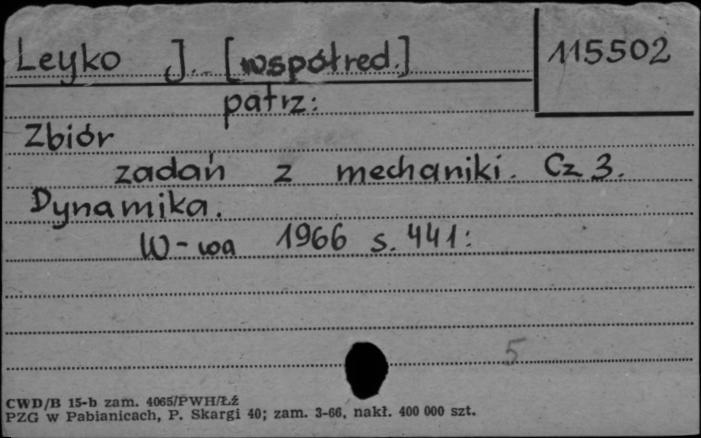 Leyko J. [współred.] 115502
patrz:
Zbiór
zadań z mechaniki. Cz 3.
Dynamika.
W-wa 1966 s. 441:
5
CWD/B 15-b zam. 4065/PWH/Łź
PZG w Pabianicach, P. Skargi 40; zam. 3-66, nakł. 400 000 szt.